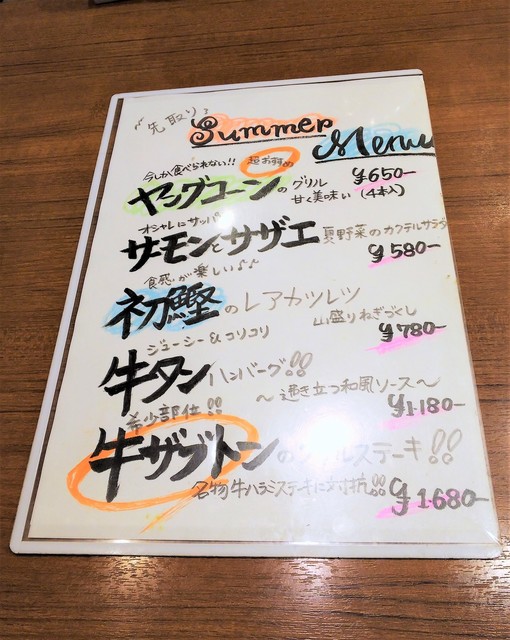 〜先取り〜
Summer
Menu
今しか食べられない!! 超おすすめ
ヤングコーンのグリル ¥650-
甘く美味い (4本入)
オシャレにサッパリ
サーモンとサザエ 夏野菜のカクテルサラダ
¥580-
食感が楽しい♪♪
初鰹のレアカツレツ
山盛りねぎづくし
¥780-
ジューシー&コリコリ
牛タンハンバーグ!!
〜透き立つ和風ソース〜
¥1.180-
希少部位!!
牛ザブトンの グリルステーキ!!
名物牛ハラミステーキに対抗!! ¥1680-